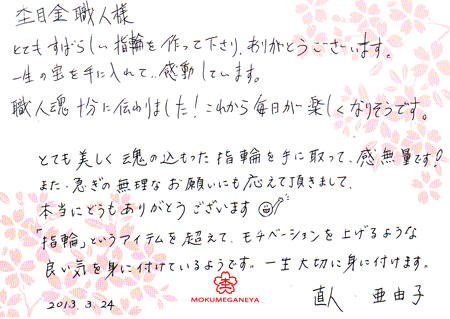 杢目金職人様
とてもすばらしい指輪を作って下さり、ありがとうございます。
一生の宝を手に入れて、感動しています。
職人魂十分に伝わりました！これから毎日が楽しくなりそうです。
とても美しく魂の込もった指輪を手に取って、感無量です！
また、急ぎの無理なお願いにも応えて頂きまして、
本当にどうもありがとうございます
「指輪」というアイテムを超えて、モチベーションを上げるような
良い気を身に付けているようです。一生大切に身に付けます。
2013.3.24
直人 亜由子
MOKUMEGANEYA